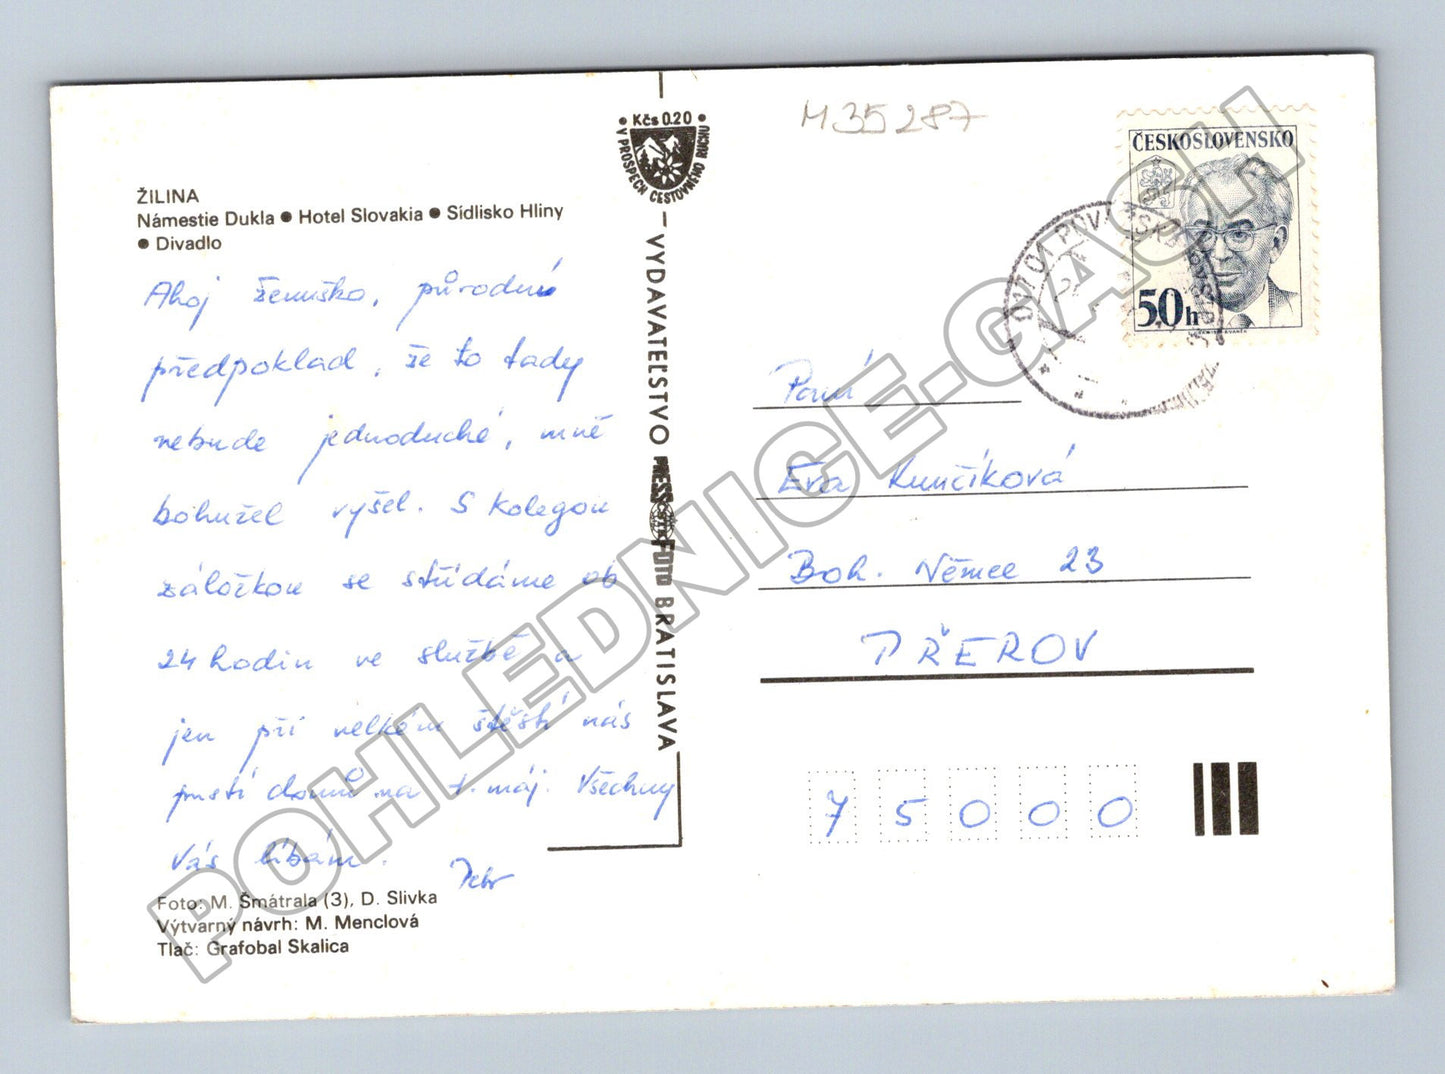 ŽILINA
Námestie Dukla ● Hotel Slovakia ● Sídlisko Hliny
● Divadlo
Ahoj ženuško, původní
předpoklad, že to tady
nebude jednoduché, mně
bohužel vyšel. S kolegou
záložkou se střídáme ob
24 hodin ve službě a
jen při velkém štěstí nás
pustí domů na 1. máj. Všechny
Vás líbám. Petr
Foto: M. Šmátrala (3), D. Slivka
Výtvarný návrh: M. Menclová
Tlač: Grafobal Skalica
Kčs 0.20
V PROSPECH CESTOVNÉHO RUCHU
VYDAVATEĽSTVO PRESSFOTO BRATISLAVA
ČSTK
M35287
ČESKOSLOVENSKO
50h
017 01 POVAŽSKÁ
Paní
Eva Kunčíková
Bož. Němce 23
PŘEROV
75000
POHLEDNICE-CASH